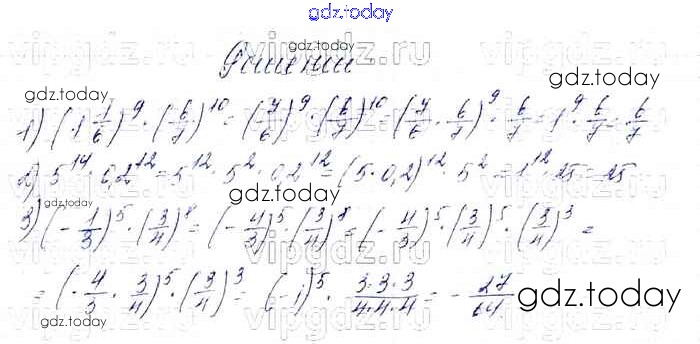 gdz.today
gdz.today
Решение
gdz.today
gdz.today
1) (1 1/6)^9 · (6/7)^10 = (7/6)^9 · (6/7)^10 = (7/6 · 6/7)^9 · 6/7 = 1^9 · 6/7 = 6/7
2) 5^14 · 0,2^12 = 5^12 · 5^2 · 0,2^12 = (5 · 0,2)^12 · 5^2 = 1^12 · 25 = 25
gdz.today
gdz.today
3) (- 1/3)^5 · (3/4)^8 = (- 4/3)^5 · (3/4)^8 = (- 4/3)^5 · (3/4)^5 · (3/4)^3 =
gdz.today
= (- 4/3 · 3/4)^5 · (3/4)^3 = (-1)^5 · 3·3·3/4·4·4 = - 27/64
gdz.today
gdz.today
gdz.today